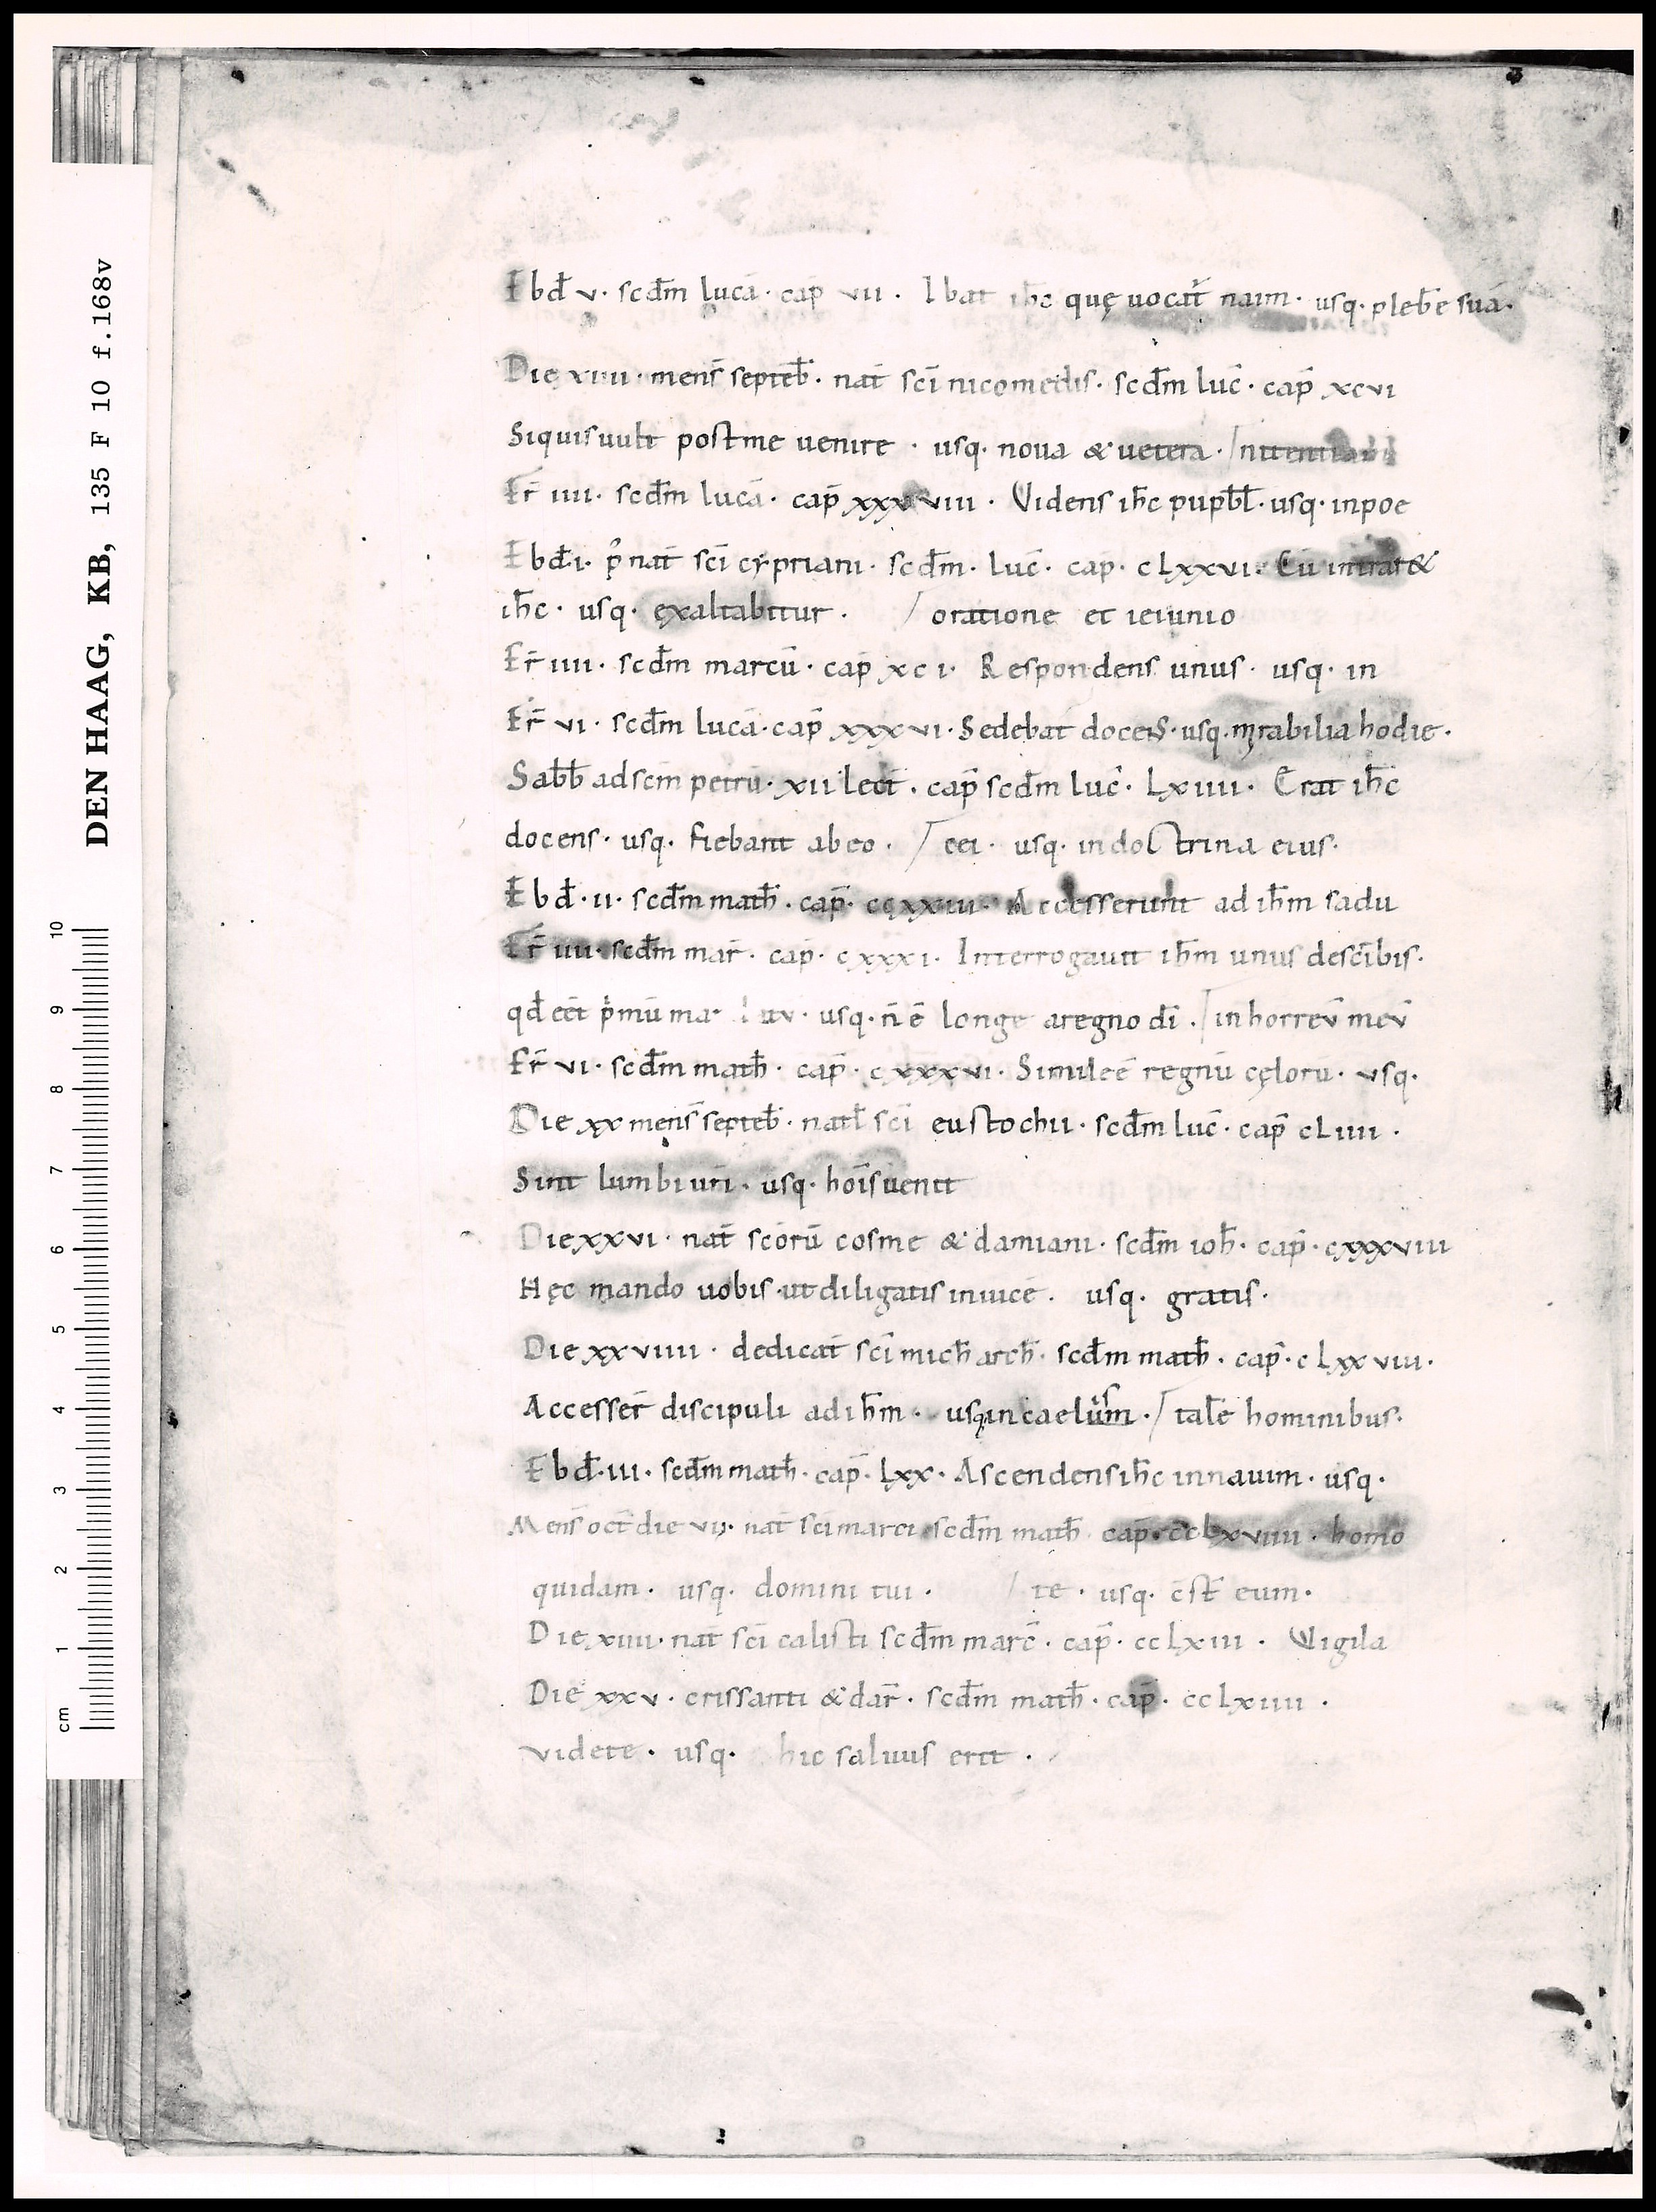 DEN HAAG, KB, 135 F 10 f.168v
Ebđ v· scdm̄ lucā· cap̄ vii · Ibat ih̄c quę uocat̄ naim· usq· plebē suā·
Dię xiiii· mens̄ septeb̄· nat̄ scī nicomedis· scdm̄ luc̄· cap̄ xcvi
Siquisuult postme uenire · usq· noua & uetera ·/
Fr̄ iiii· scdm̄ lucā· cap̄ xxxviii · Videns ih̄c pupbl̄· usq· inpoe
Ebđ·i· p̊ nat̄ scī cypriani· scdm̄· luc̄· cap̄· cLxxvi· Cū intrar&
ih̄c· usq· exaltabitur · / oratione et ieiunio
Fr̄ iiii· scdm̄ marcū· cap̄ xci· Respondens unus· usq· in
Fr̄ vi· scdm̄ lucā·cap̄ xxxvi· Sedebat docens·usq·mirabilia hodie·
Sabb̄ adscm̄ petrū· xii lect̄· cap̄ scdm̄ luc̄· Lxiiii· Erat ih̄c
docens· usq· fiebant abeo · / cei· usq· indoctrina eius·
Ebđ·ii· scdm̄ math̄· cap̄· ccxxiiii· Accesserunt ad ih̄m sadu
Fr̄ iiii· scdm̄ mar̄· cap̄· cxxxi· Interrogauit ih̄m unus descībis·
qđ eēt p̄mū ma· usq· n̄ ē longe aregno dī ·/ inhorreū meū
Fr̄ vi· scdm̄ math̄· cap̄· cxxxvi· Simileē regnū cęloru· usq·
Die xx mens̄ septeb̄· natl̄ scī eustochii· scdm̄ luc̄· cap̄ cLiiii ·
Sint lumbi urī· usq· hoīs uenit
Die xxvi· nat̄ scōrū cosme & damiani· scdm̄ ioh̄· cap̄· cxxxviii
Hęc mando uobis·ut diligatis inuicē· usq· gratis·
Die xxviiii· dedicat̄ scī mich̄ arch̄· scdm̄ math̄· cap̄· cLxxviii·
Accesser̄ discipuli ad ih̄m· usq·in caelum̄ ·/ tale hominibus·
Ebđ·iii· scdm̄ math̄· cap̄· Lxx· Ascendens ih̄c in nauim· usq·
Mens̄ oct̄ die vii· nat̄ scī marci scdm̄ math̄ cap̄· ccLxviiii· homo
quidam· usq· domini tui · / te· usq· ēst̄ eum·
Die xiiii· nat̄ scī calisti scdm̄ marc̄· cap̄· ccLxiii · Vigila
Die xxv· crissanti & dar̄· scdm̄ math̄· cap̄· ccLxiiii ·
videte· usq· hic saluus erit ·
cm 1 2 3 4 5 6 7 8 9 10